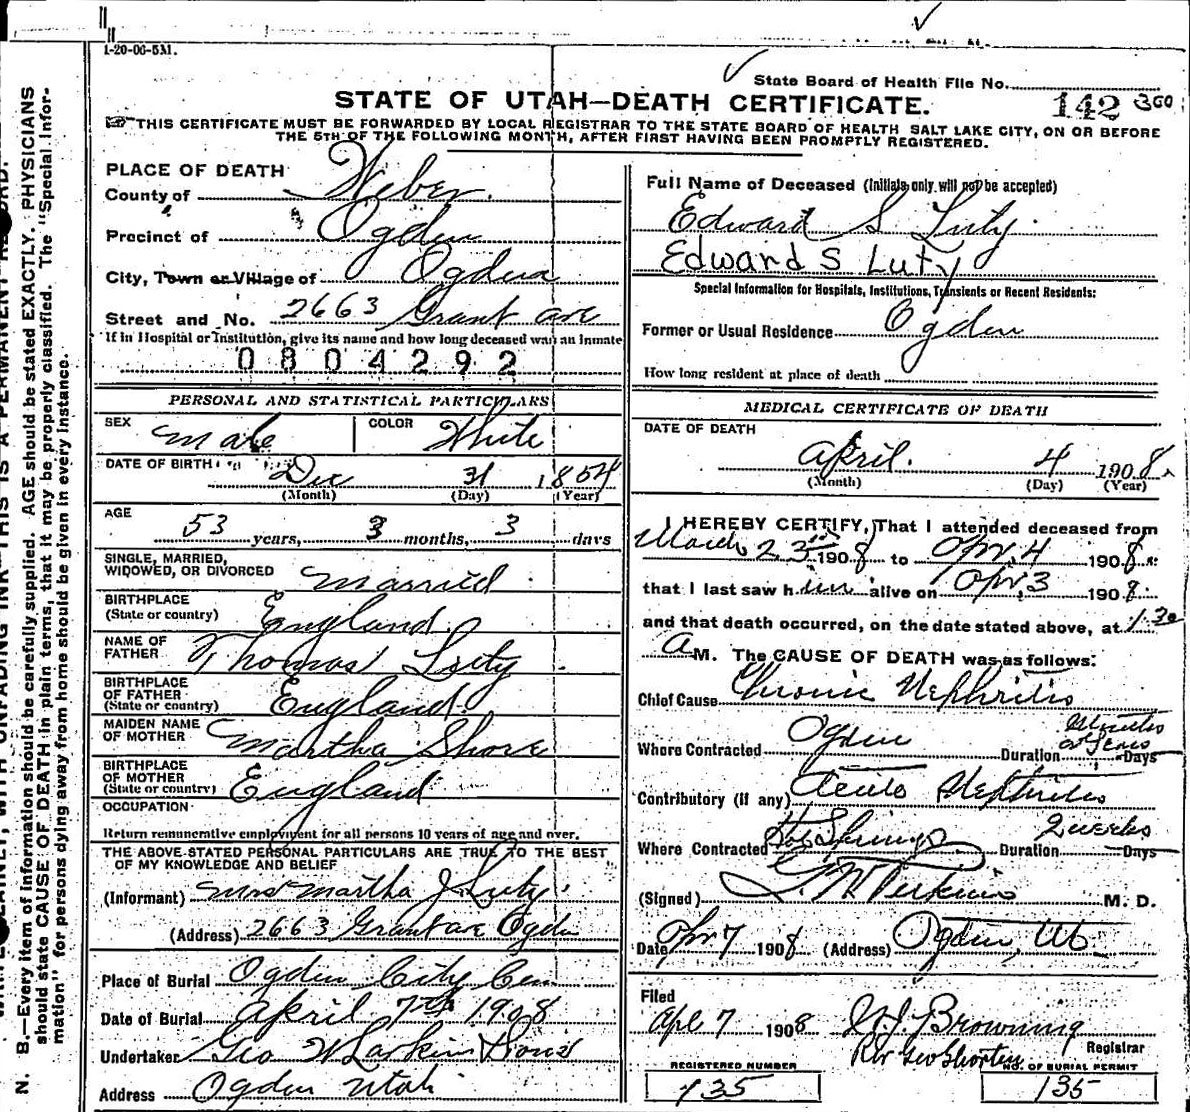 1-20-06-5M.
State Board of Health File No.
STATE OF UTAH—DEATH CERTIFICATE. 142 360
THIS CERTIFICATE MUST BE FORWARDED BY LOCAL REGISTRAR TO THE STATE BOARD OF HEALTH SALT LAKE CITY, ON OR BEFORE
THE 5TH OF THE FOLLOWING MONTH, AFTER FIRST HAVING BEEN PROMPTLY REGISTERED.
PLACE OF DEATH
County of Weber.
Precinct of Ogden
City, Town or Village of Ogden
Street and No. 2663 Grant ave
If in Hospital or Institution, give its name and how long deceased was an inmate
0804292
PERSONAL AND STATISTICAL PARTICULARS
SEX Male COLOR White
DATE OF BIRTH Dec 31 1854
(Month) (Day) (Year)
AGE
53 years, 3 months, 3 days
SINGLE, MARRIED,
WIDOWED, OR DIVORCED Married
BIRTHPLACE
(State or country) England
NAME OF
FATHER Thomas Luty
BIRTHPLACE
OF FATHER
(State or country) England
MAIDEN NAME
OF MOTHER Martha Shore
BIRTHPLACE
OF MOTHER
(State or country) England
OCCUPATION
Return remunerative employment for all persons 10 years of age and over.
THE ABOVE STATED PERSONAL PARTICULARS ARE TRUE TO THE BEST
OF MY KNOWLEDGE AND BELIEF
(Informant) Mrs Martha J Luty
(Address) 2663 Grant ave Ogden
Place of Burial Ogden City Cem
Date of Burial April 7th 1908
Undertaker Geo W Larkin & Sons
Address Ogden Utah
Full Name of Deceased (Initials only will not be accepted)
Edward S Luty
Edward S Luty
Special Information for Hospitals, Institutions, Transients or Recent Residents:
Former or Usual Residence Ogden
How long resident at place of death
MEDICAL CERTIFICATE OF DEATH
DATE OF DEATH
April. 4 1908
(Month) (Day) (Year)
I HEREBY CERTIFY, That I attended deceased from
March 23 1908 to Apr, 4 1908
that I last saw him alive on Apr, 3 1908
and that death occurred, on the date stated above, at 1.30
A M. The CAUSE OF DEATH was as follows:
Chief Cause Chronic Nephritis
Where Contracted Ogden Duration Months or Years Days
Contributory (if any) Acute Nephritis
Where Contracted Hot Springs Duration 2 weeks Days
(Signed) M. D.
Date Apr 7 1908 (Address) Ogden, Ut
Filed
Apl 7 1908 Browning
Registrar
Per Geo Shorten
REGISTERED NUMBER NO. OF BURIAL PERMIT
135 135
N. B.—Every item of information should be carefully supplied. AGE should be stated EXACTLY. PHYSICIANS
should state CAUSE OF DEATH in plain terms, that it may be properly classified. The "Special Infor-
mation" for persons dying away from home should be given in every instance.